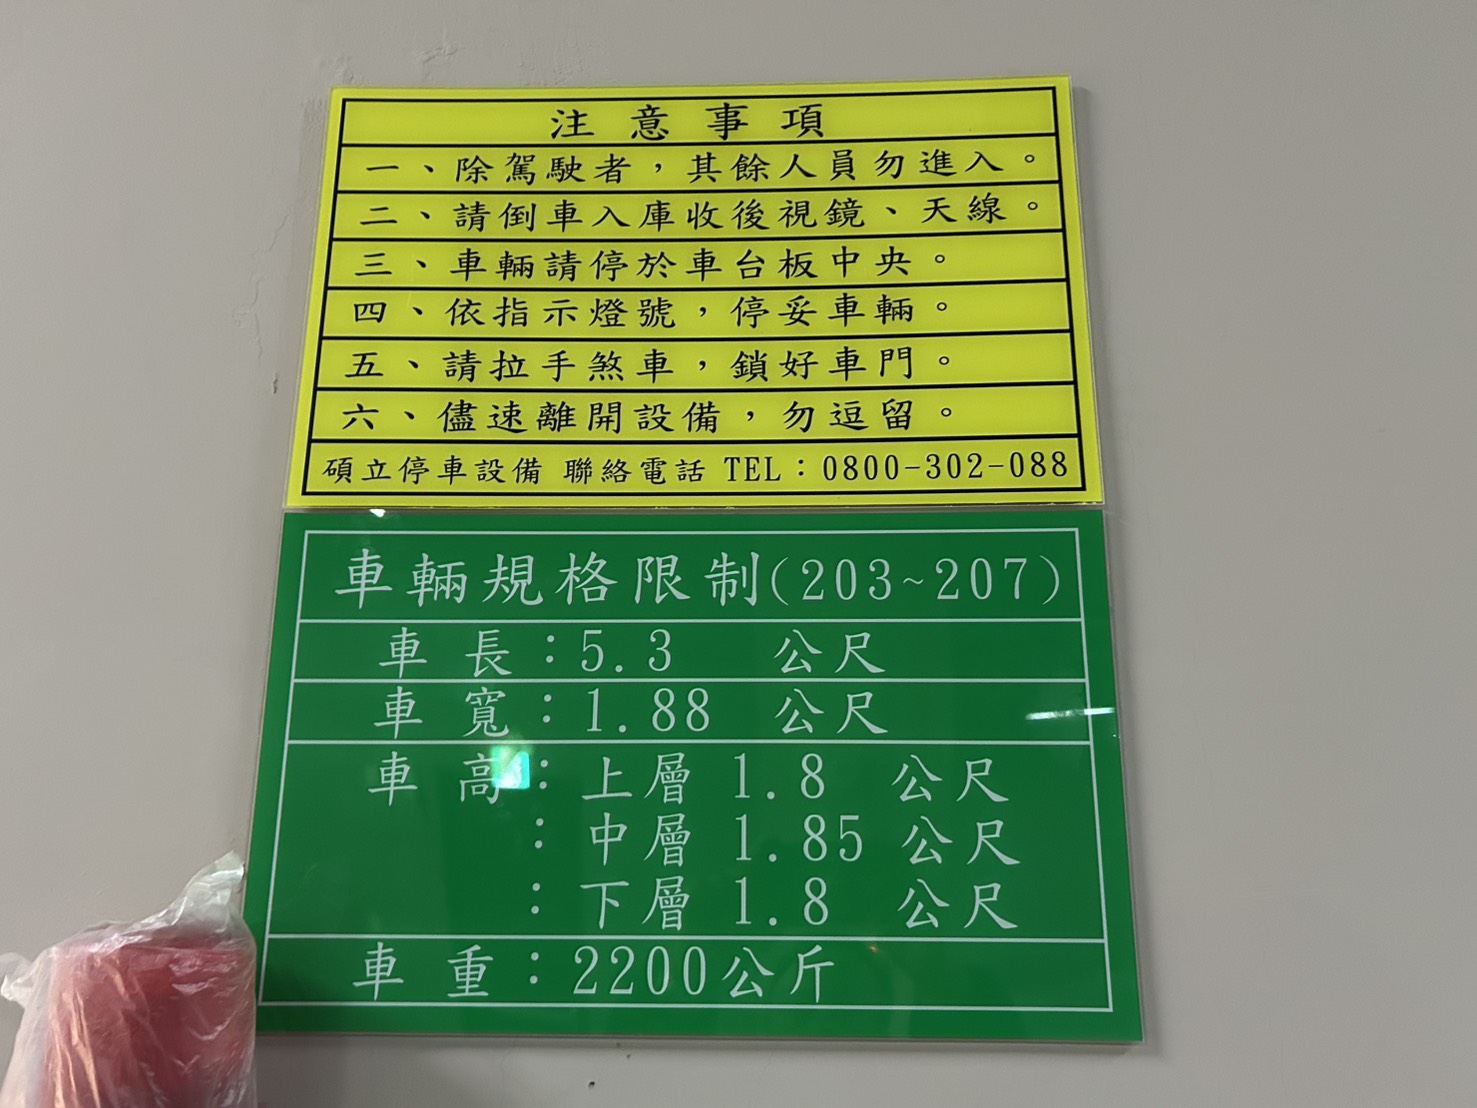 注意事項
一、除駕駛者，其餘人員勿進入。
二、請倒車入庫收後視鏡、天線。
三、車輛請停於車台板中央。
四、依指示燈號，停妥車輛。
五、請拉手煞車，鎖好車門。
六、儘速離開設備，勿逗留。
碩立停車設備 聯絡電話 TEL：0800-302-088
車輛規格限制(203~207)
車長：5.3 公尺
車寬：1.88 公尺
車高：上層 1.8 公尺
：中層 1.85 公尺
：下層 1.8 公尺
車重：2200公斤